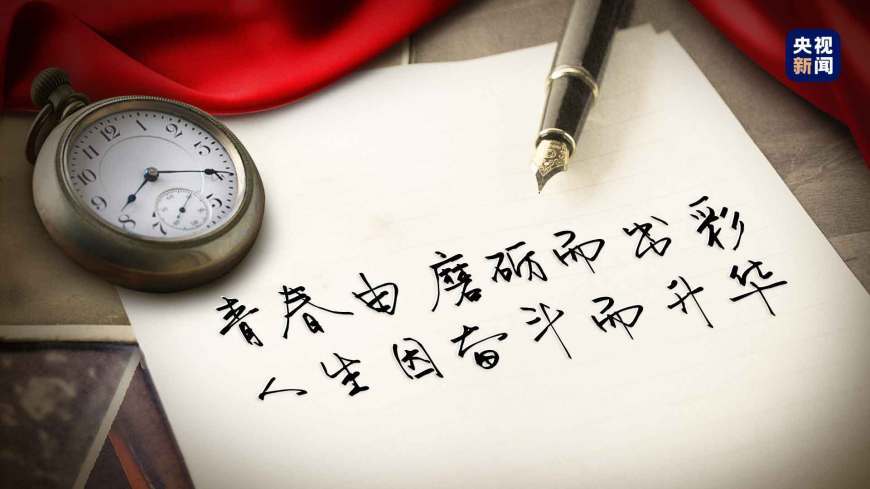 央视
新闻
青春由磨砺而出彩
人生因奋斗而升华
12
1
2
3
4
5
7
8
9
10
11